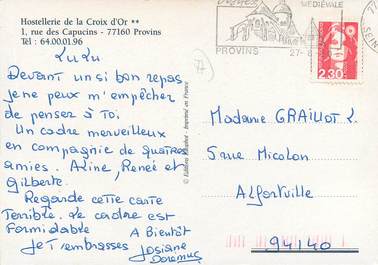 Hostellerie de la Croix d'Or **
1, rue des Capucins - 77160 Provins
Tél : 64.00.01.96
LuLu
Devant un si bon repas
je ne peux m'empêcher
de penser à Toi.
Un cadre merveilleux
en compagnie de quatres
amies. Aline, Renée et
Gilberte.
Regarde cette carte
Terrible. Le cadre est
Formidable
A Bientôt
Je T'embrasses
Josiane
MEDIÉVALE
PROVINS
27-8
77
SEIN
2,30
77
Madame GRAILLOT L.
5 rue Micolon
Alfortville
94140